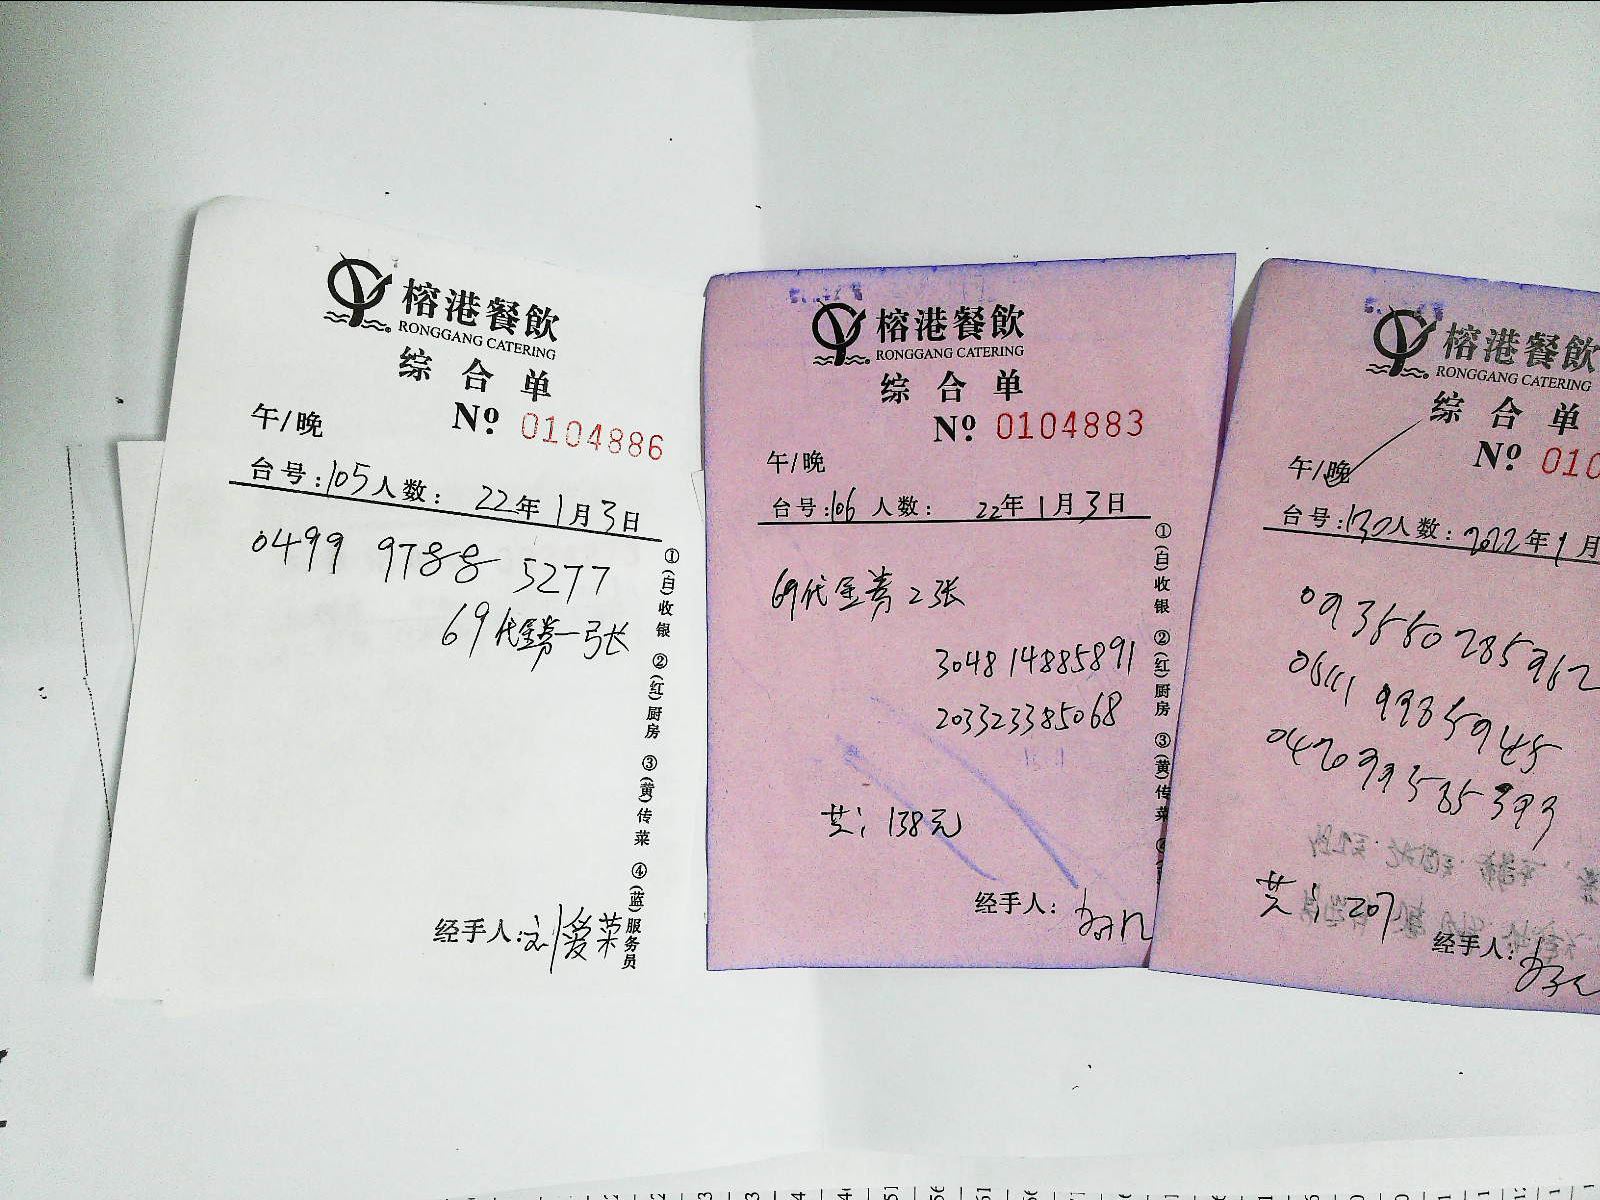 榕港餐飲
RONGGANG CATERING
综合单
午/晚 № 0104886
台号:105人数: 22年1月3日
0499 9788 5277
69代金券一张
①(白)收银 ②(红)厨房 ③(黄)传菜 ④(蓝)服务员
经手人:刘爱荣
榕港餐飲
RONGGANG CATERING
综合单
№ 0104883
午/晚
台号:106 人数: 22年1月3日
69代金券2张
3048 14885891
203323385068
共: 138元
①(白)收银 ②(红)厨房 ③(黄)传菜
经手人:
榕港餐飲
RONGGANG CATERING
综合单
№ 010
午/晚
台号:130人数:2022年1月
共: 207
经手人: